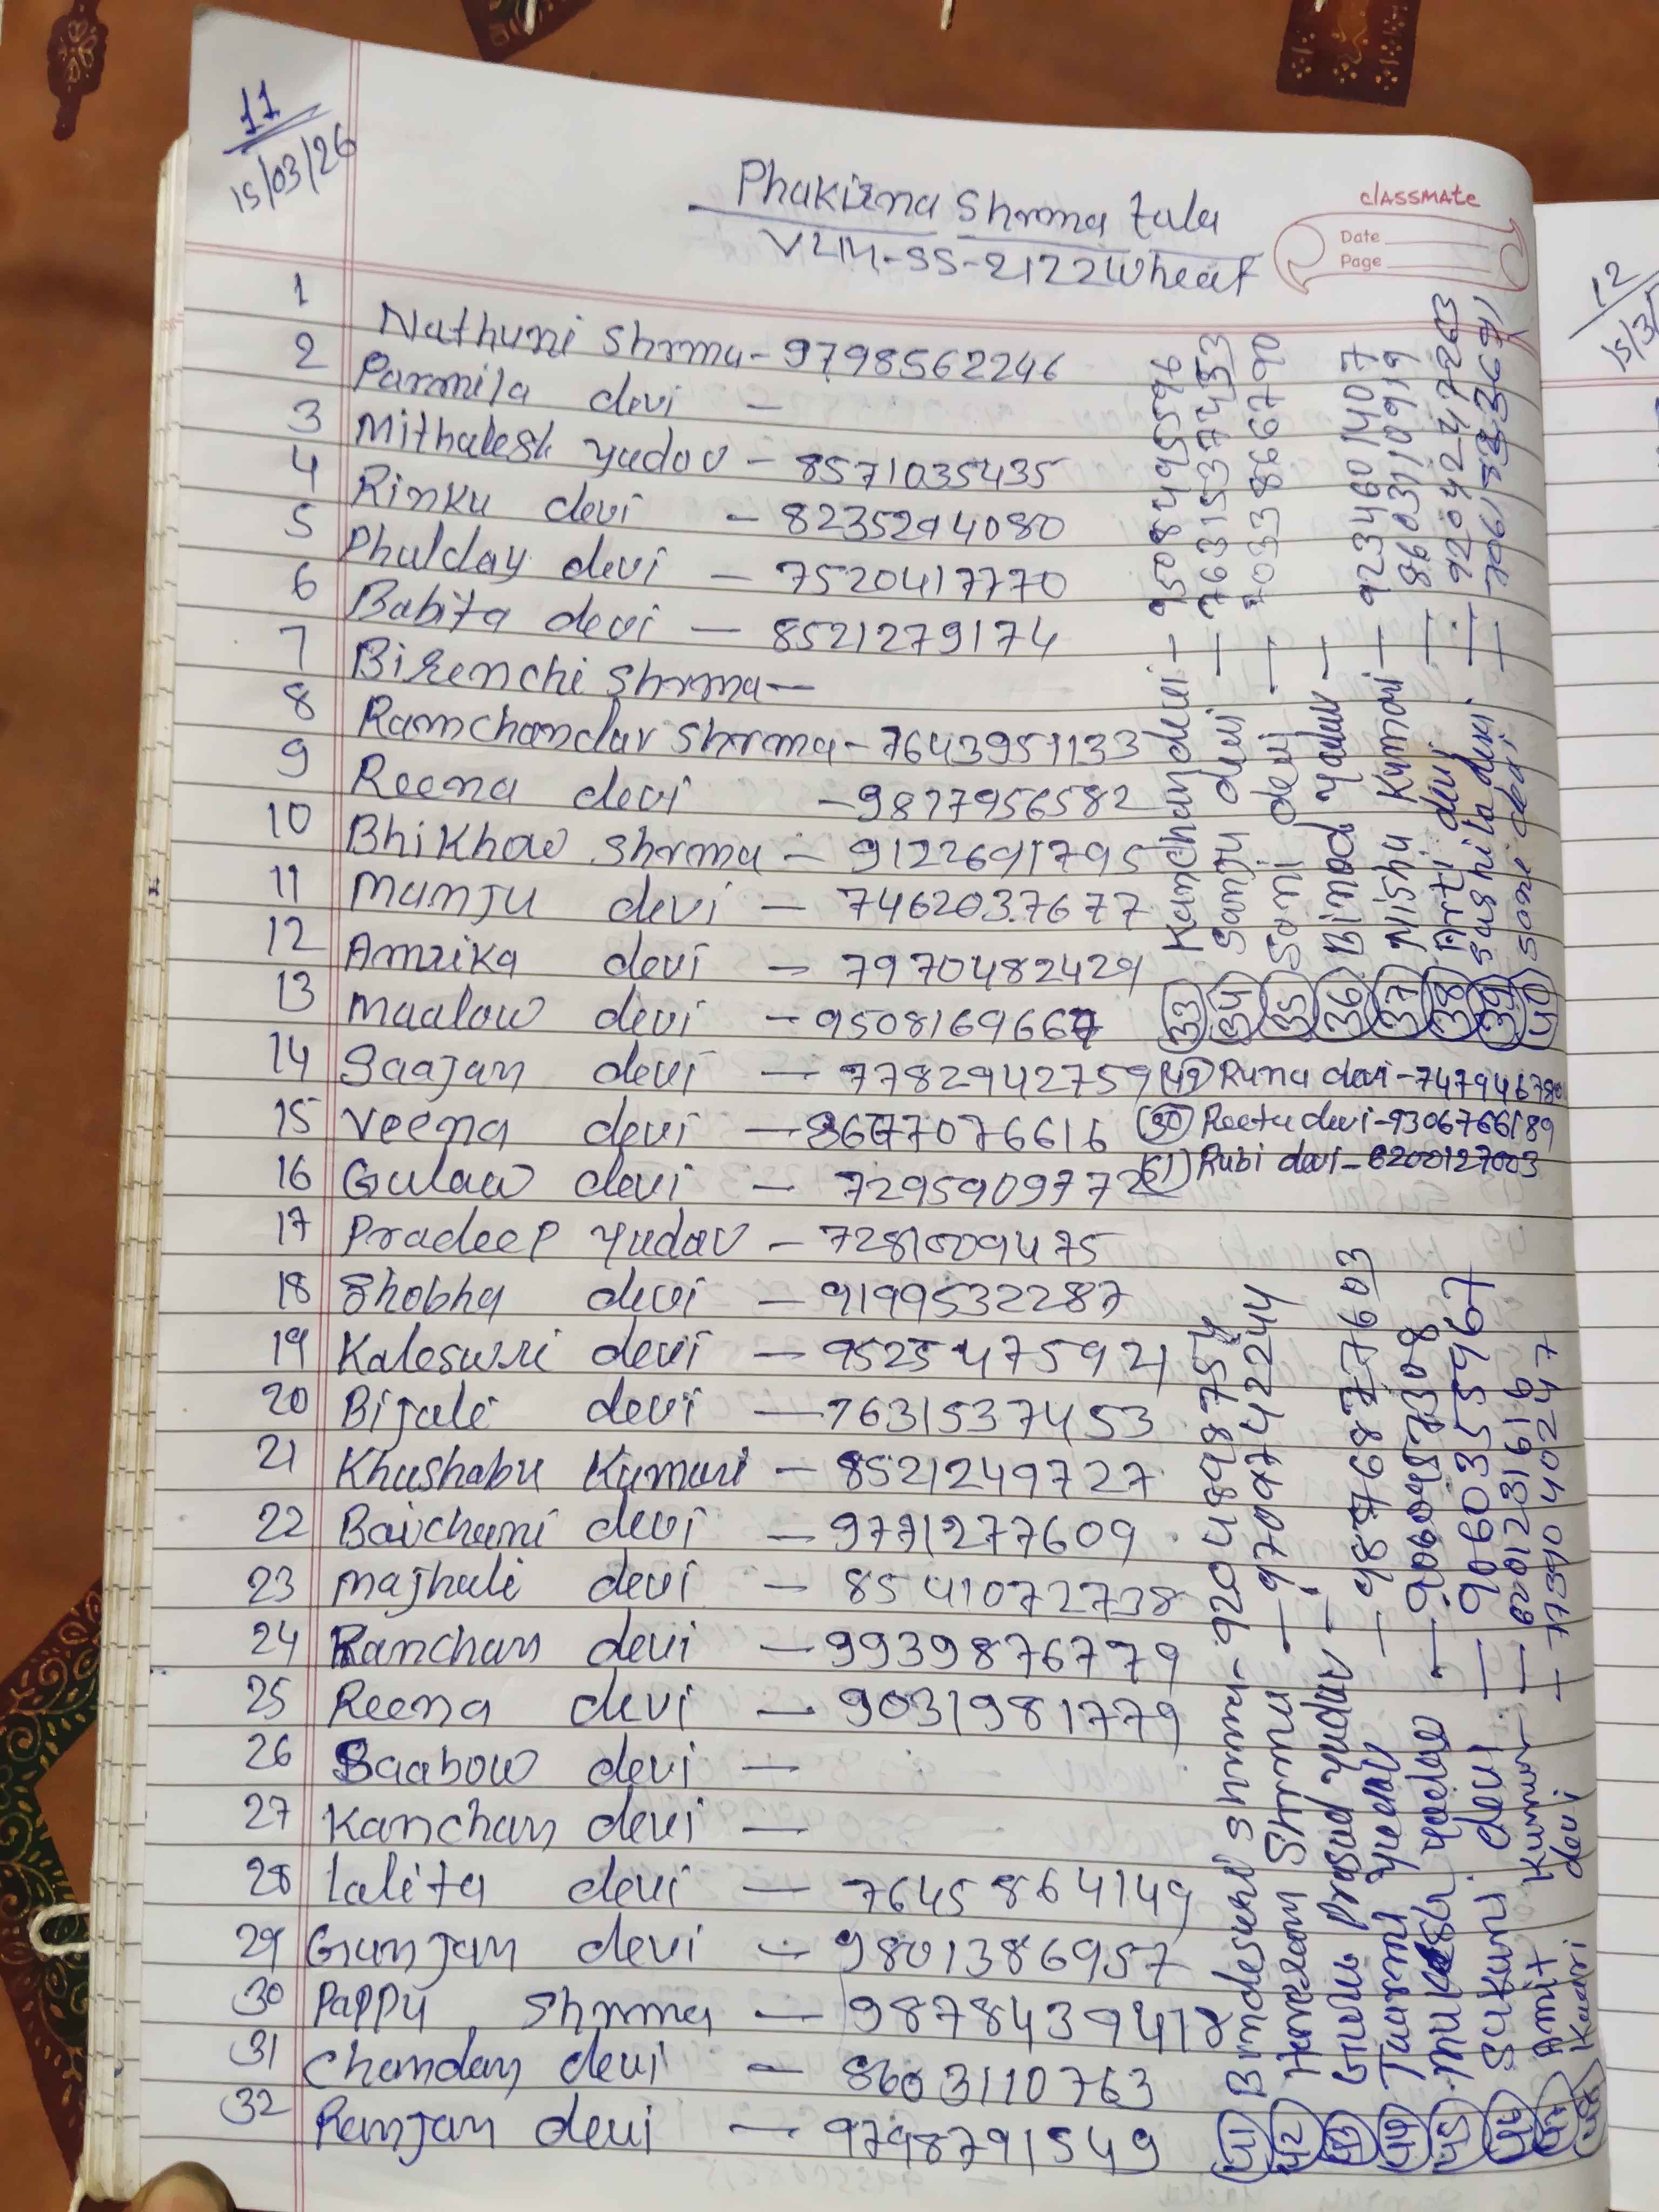 11
15/03/26
Phakirna Shrma tala
classmate
Date
Page
1 Nathuni Shrma - 9798562246
2 Parmila devi -
3 Mithalesh yadav - 8571035435
4 Rinku devi - 8235294080
5 Phulday devi - 7520417770
6 Babita devi - 8521279174
7 Birenchi Shrma -
8 Ramchandar Shrma - 7643951133
9 Reena devi - 9827956582
10 Bhikhao Shrma - 9122691795
11 Munju devi - 7462037677
12 Amrika devi - 7970482429
13 Maalow devi -
14 Saajan devi - 7782942759
15 Veena devi -
16 Gulaw devi - 7295909772
17 Pradeep yadav -
18 Shobha devi - 9199532287
19 Kaleswri devi -
20 Bijali devi - 7631537453
21 Khushabu Kumari - 8521249727
22 Baichuni devi - 9771277609
23 Majhali devi - 8541072738
24 Ranchan devi - 9939876779
25 Reena devi - 9031981779
26 Saabow devi -
27 Kanchan devi -
28 lalita devi - 7645864149
29 Gunjan devi - 9801386957
30 Pappu Shrma - 9878439418
31 Chandan devi - 8603110763
32 Ranjan devi - 9798791549
33 Kanchan devi - 9508495596
34 Sanju devi - 7631537453
35 Soni devi - 7033866790
36 Binod yadav -
37 Nishu Kumari - 9234601407
38 Arti devi - 8603110919
39 Sushila devi - 9204247263
40 devi
49 Runa devi - 747946780
50 Reeta devi - 9306766189
51 Rubi devi - 6200127003
41 Bindeswri Shrma - 9204898754
42 Hareram Shrma - 9709742244
43 Prasad yadav -
44 yadav -
45 yadav -
46 Sukuni devi - 9060355967
47 Amit Kumar - 6201231616
48 devi - 7739402447
12